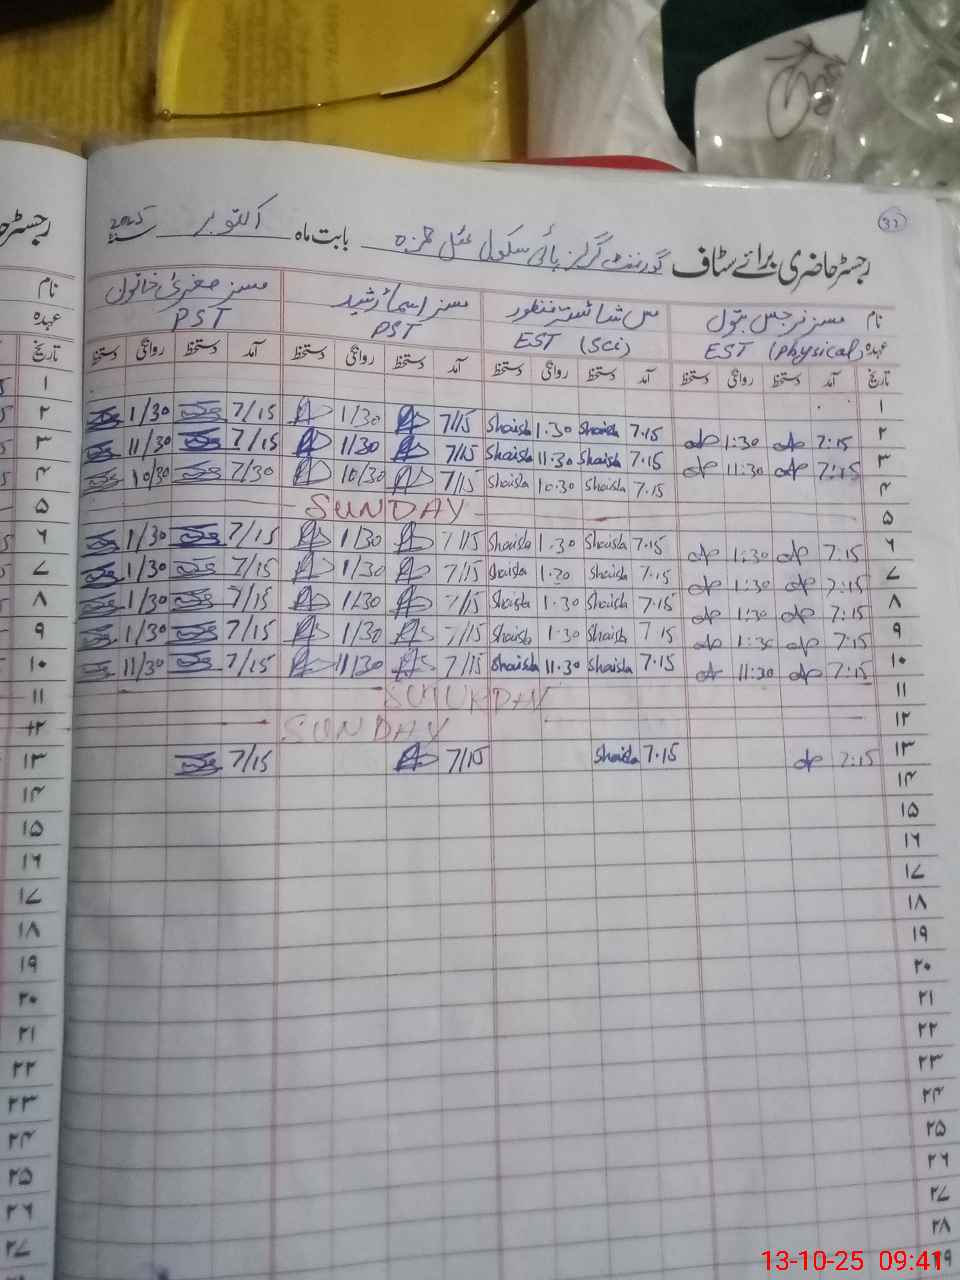 32
رجسٹر حاضری برائے سٹاف گورنمنٹ گرلز ہائی سکول بابت ماہ اکتوبر سنہ 2025
رجسٹر
نام مسز نرجس بتول مس شائستہ منظور مسز اسماء رشید مسز صغریٰ خاتون نام
عہدہ EST (Physical) EST (Sci) PST PST عہدہ
تاریخ آمد دستخط روانگی دستخط آمد دستخط روانگی دستخط آمد دستخط روانگی دستخط آمد دستخط روانگی دستخط تاریخ
۱ ۱
۲ 7:15 1:30 7.15 Shaista 1.30 Shaista 7/15 1/30 7/15 1/30 ۲
۳ 7:15 11:30 7.15 Shaista 11.30 Shaista 7/15 11/30 7/15 11/30 ۳
۴ 7.15 Shaista 10.30 Shaista 7/15 10/30 7/30 10/30 ۴
۵ SUNDAY ۵
۶ 7:15 1:30 7.15 Shaista 1.30 Shaista 7/15 1/30 7/15 1/30 ۶
۷ 7:15 1:30 7.15 Shaista 1.30 Shaista 7/15 1/30 7/15 1/30 ۷
۸ 7:15 1:30 7.15 Shaista 1.30 Shaista 7/15 1/30 7/15 1/30 ۸
۹ 7:15 1:30 7.15 Shaista 1.30 Shaista 7/15 1/30 7/15 1/30 ۹
۱۰ 7:15 11:30 7.15 Shaista 11.30 Shaista 7/15 11/30 7/15 11/30 ۱۰
۱۱ SATURDAY ۱۱
۱۲ SUNDAY ۱۲
۱۳ 7:15 7.15 Shaista 7/15 7/15 ۱۳
۱۴ ۱۴
۱۵ ۱۵
۱۶ ۱۶
۱۷ ۱۷
۱۸ ۱۸
۱۹ ۱۹
۲۰ ۲۰
۲۱ ۲۱
۲۲ ۲۲
۲۳ ۲۳
۲۴ ۲۴
۲۵ ۲۵
۲۶ ۲۶
۲۷ ۲۷
۲۸
13-10-25 09:41